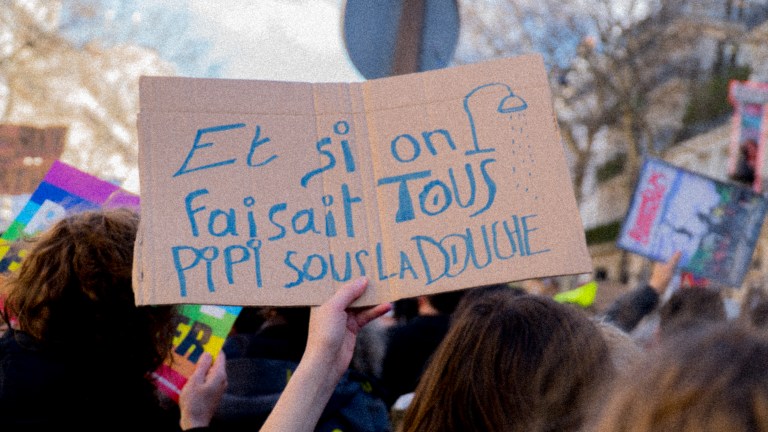 Et si on
faisait TOUS
PIPI SOUS LA DOUCHE
ER